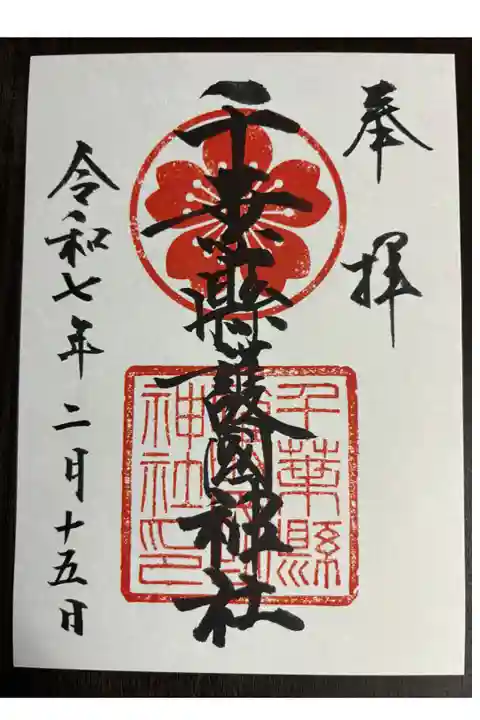 奉拝
千葉縣護國神社
千葉縣
護國
神社印
令和七年二月十五日